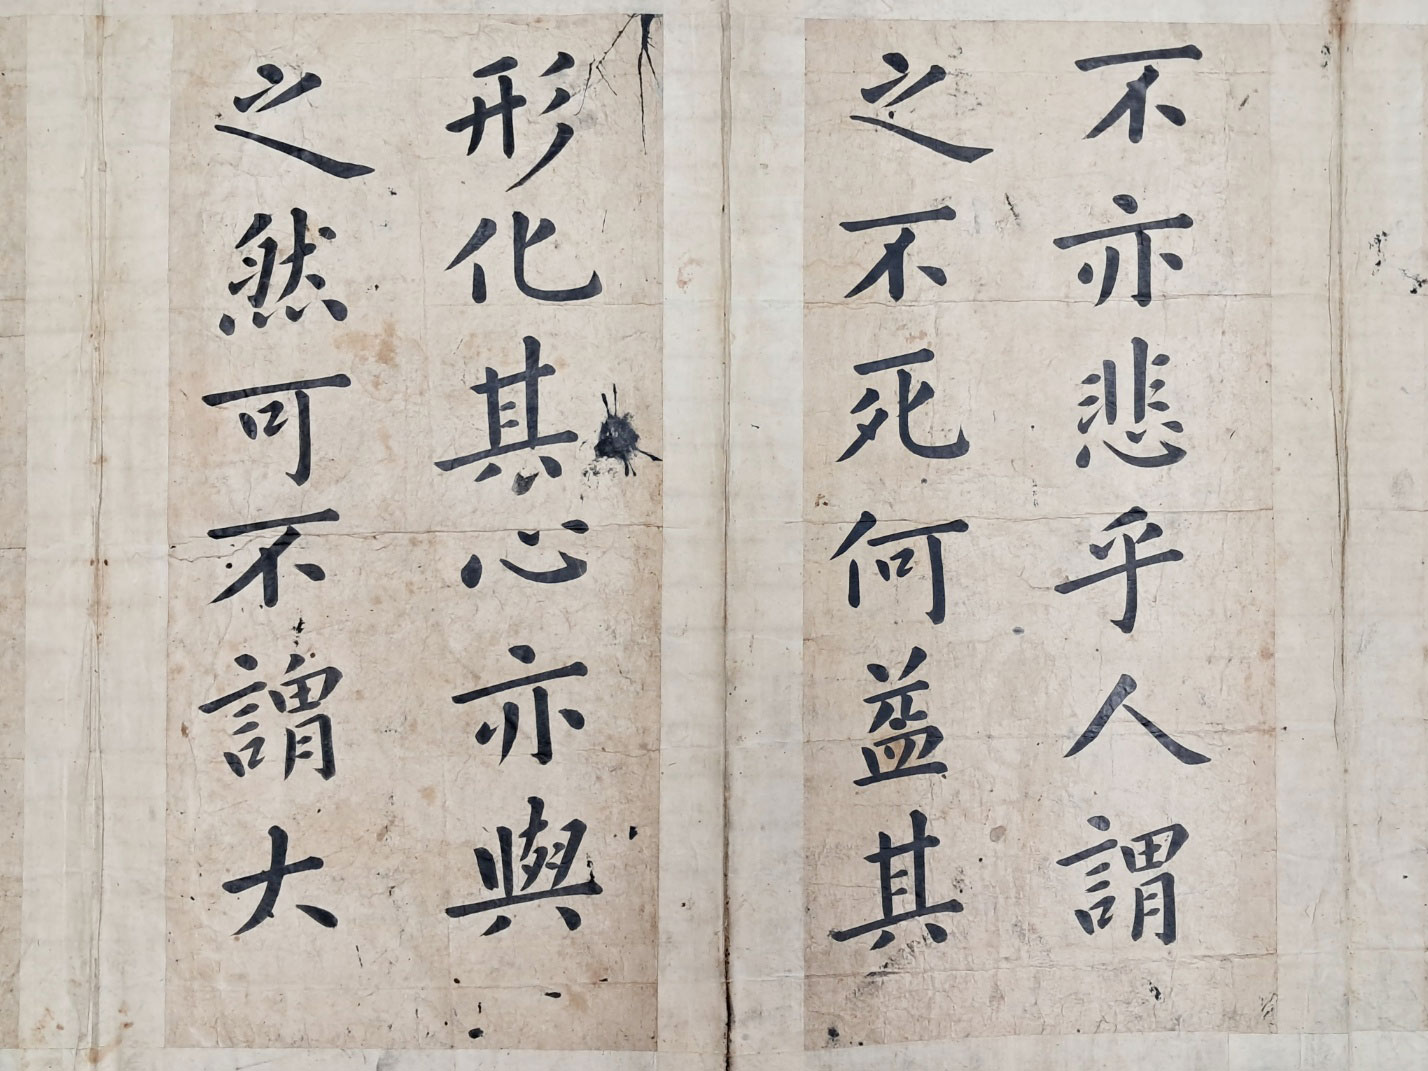 不亦悲乎人謂
之不死何益其
形化其心亦與
之然可不謂大